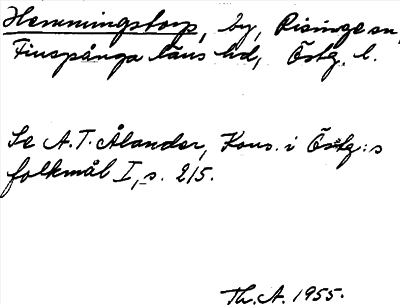 Hemmingstorp, by, Risinge sn,
Finspånga läns hd, Östg. l.
Se A.T. Ålander, Kons. i Östg:s
folkmål I, s. 215.
Th.A. 1955.